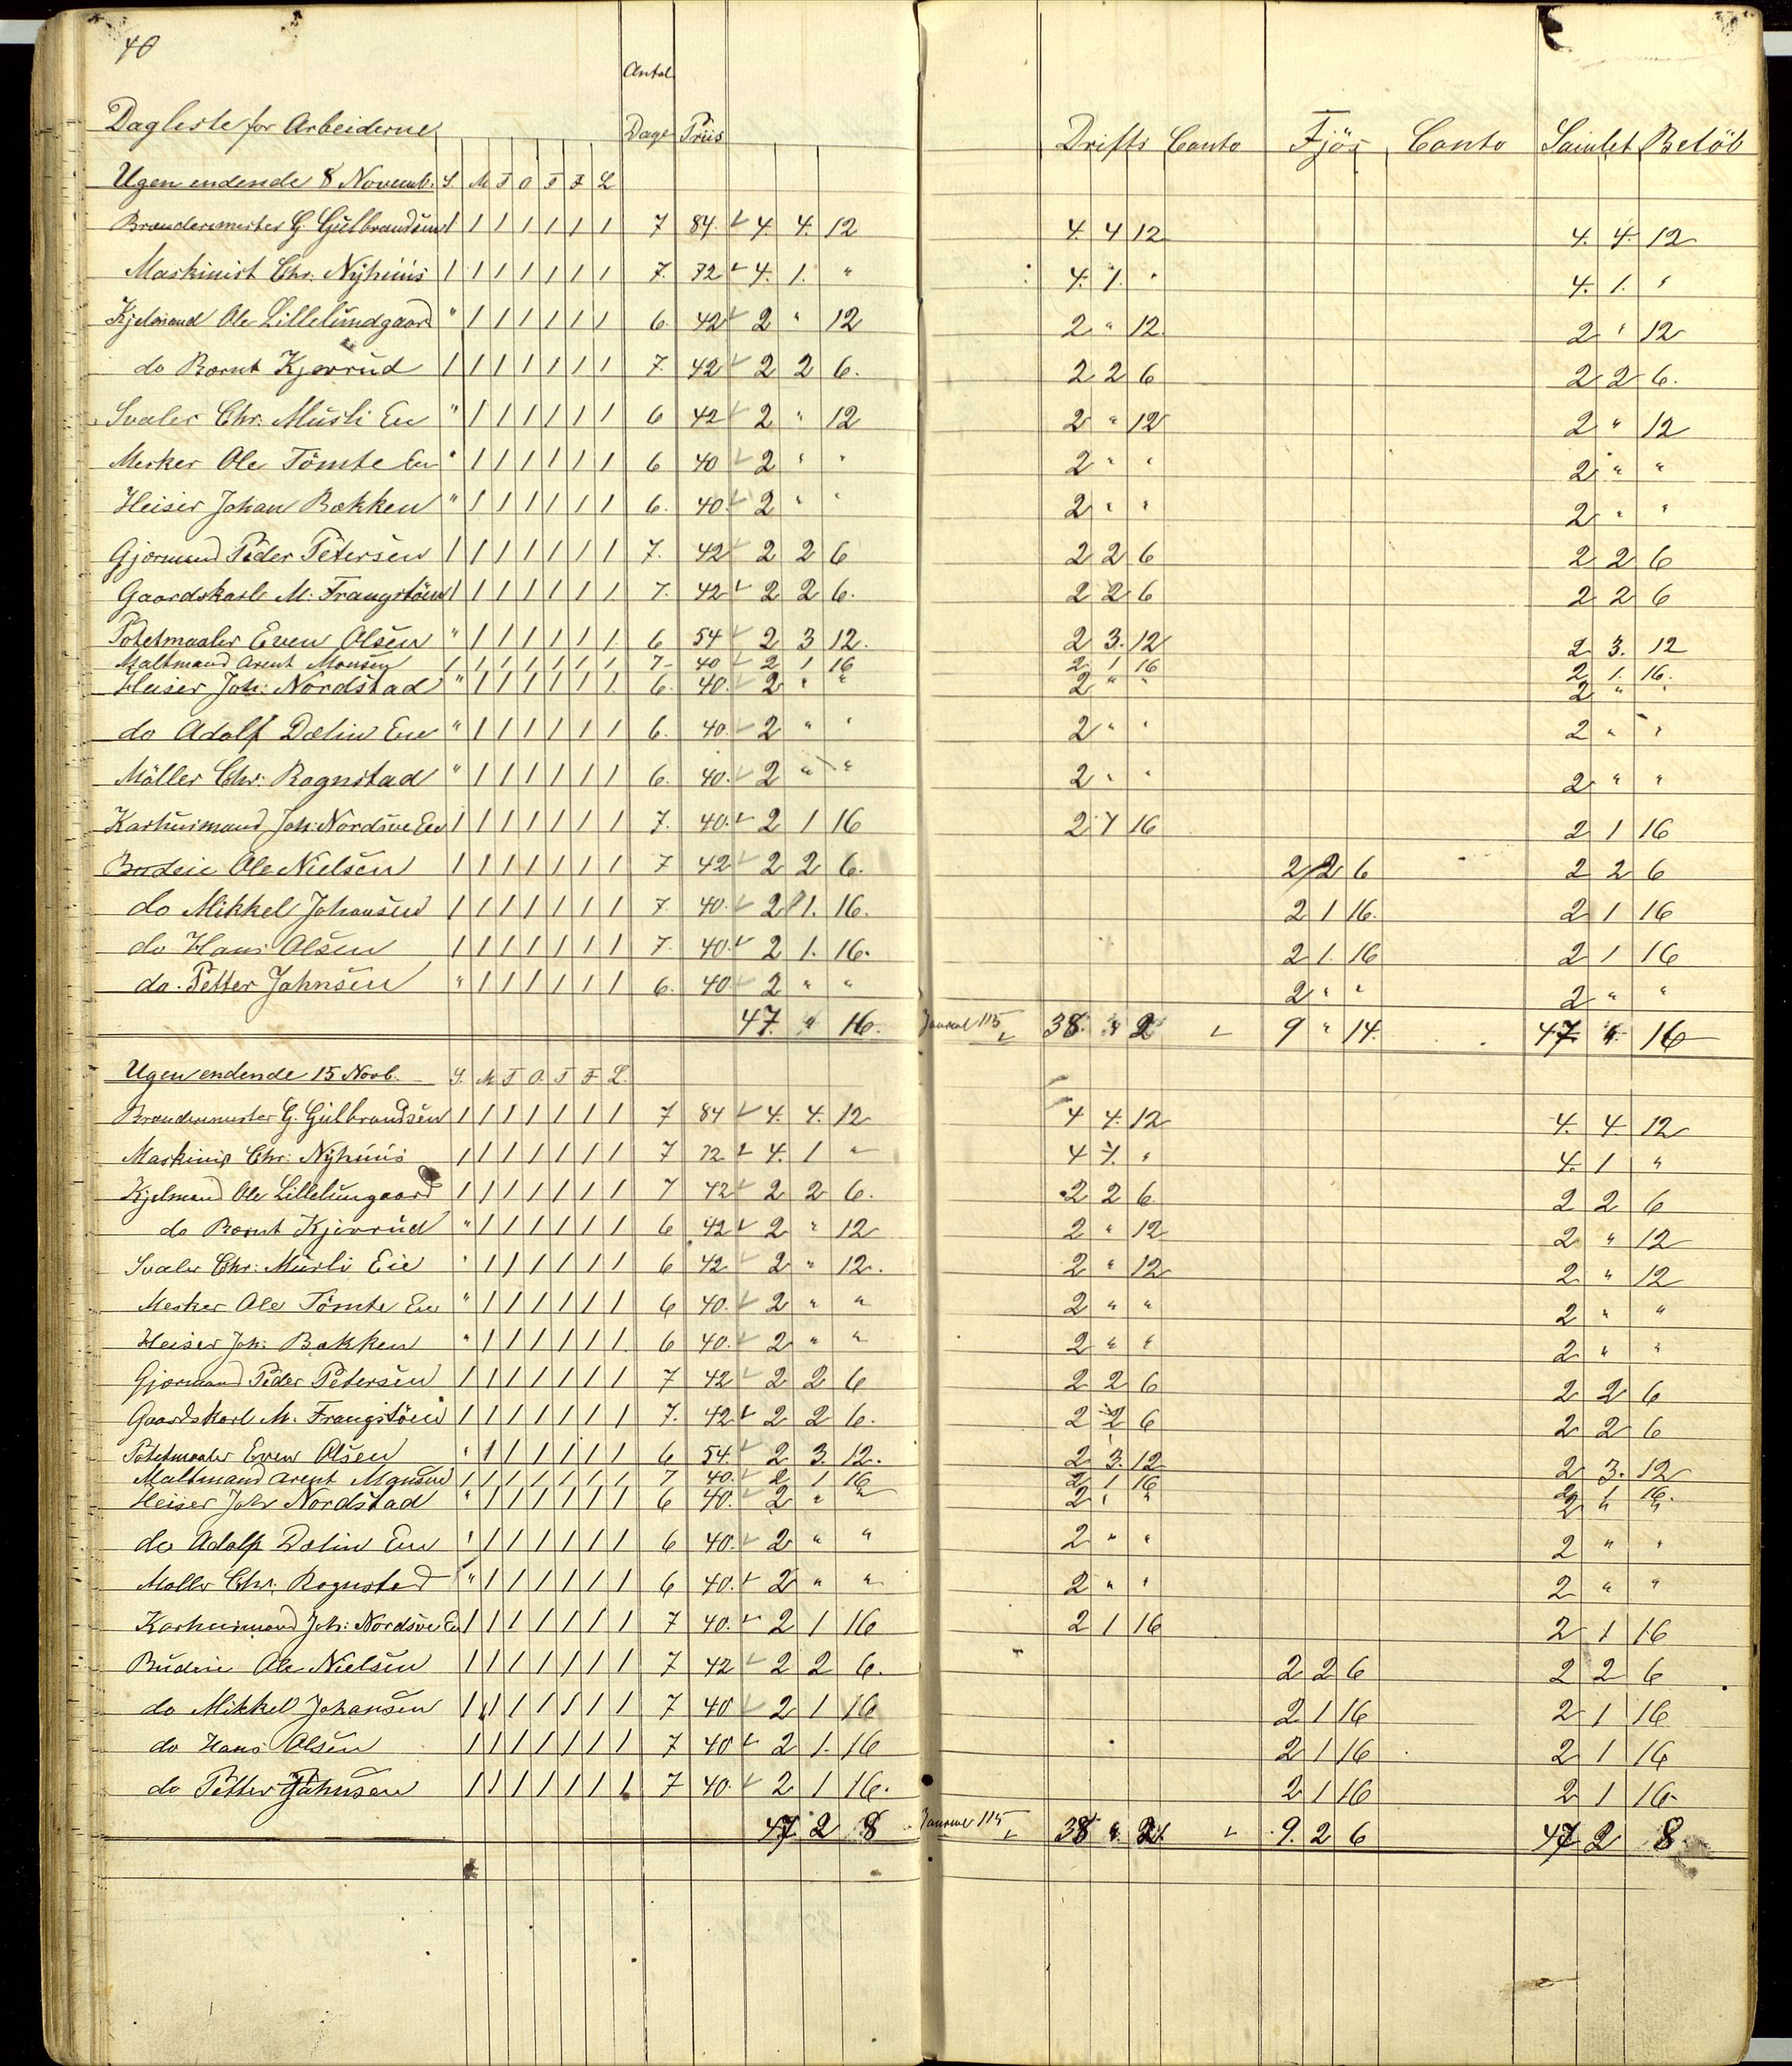 40
Antal
Dagleste for Arbeiderne Dage Priis Drifts Conto Fjös Conto Samlet Belöb
Ugen endende 8 Novemb. S. M T O T F L
Brændermester G Gulbrandsen 1 1 1 1 1 1 1 7 84. 4. 4. 12 4. 4 12 4. 4. 12
Maskinist Chr. Nÿhuus 1 1 1 1 1 1 1 7. 72 4. 1. " 4. 1. " 4. 1. "
Kjelmand Ole Lillelundgaard " 1 1 1 1 1 1 6. 42 2 " 12 2 " 12. 2 " 12
do Bærnt Kjærrud 1 1 1 1 1 1 1 7. 42 2 2 6. 2 2 6 2 2 6.
Svaler Chr. Musli Eie " 1 1 1 1 1 1 6 42 2 " 12 2 " 12 2 " 12
Mesker Ole Tömte Eie " 1 1 1 1 1 1 6 40 2 " " 2 " " 2 " "
Heiser Johan Bækken " 1 1 1 1 1 1 6. 40. 2 " " 2 " " 2 " "
Gjærmand Peder Petersen 1 1 1 1 1 1 1 7. 42 2 2 6 2 2 6 2 2 6
Gaardskarl M. Frangstöen 1 1 1 1 1 1 1 7. 42 2 2 6. 2 2 6 2 2 6
Potetmaaler Even Olsen " 1 1 1 1 1 1 6 54 2 3 12. 2 3. 12 2 3. 12
Maltmand Arent Monsen 1 1 1 1 1 1 1 7- 40 2 1 16 2 1 16 2 1. 16.
Heiser Joh: Nordstad " 1 1 1 1 1 1 6. 40. 2 " " 2 " " 2 " "
do Adolf Dælin Eie " 1 1 1 1 1 1 6. 40. 2 " " 2 " " 2 " "
Möller Chr. Rognstad " 1 1 1 1 1 1 6. 40. 2 " " 2 " " 2 " "
Karhusmand Joh: Nordsve Eie 1 1 1 1 1 1 1 7. 40. 2 1 16 2 1 16 2 1 16
Budeie Ole Nielsen 1 1 1 1 1 1 1 7 42 2 2 6. 2 2 6 2 2 6
do Mikkel Johansen 1 1 1 1 1 1 1 7. 40. 2 1. 16. 2 1 16. 2 1 16
do Hans Olsen 1 1 1 1 1 1 1 7. 40. 2 1. 16. 2 1. 16 2 1 16
do. Petter Jahnsen " 1 1 1 1 1 1 6. 40 2 " " 2 " " 2 " "
47. " 16. Journal 115 38. " 2 9 " 14. 47. " 16
Ugen endende 15 Novb. S. M T O. T F L.
Brændermester G. Gulbrandsen 1 1 1 1 1 1 1 7 84 4. 4. 12 4 4. 12 4. 4. 12
Maskinist Chr: Nÿhuus 1 1 1 1 1 1 1 7 72 4. 1 " 4 1. " 4. 1 "
Kjelmand Ole Lillelungaard 1 1 1 1 1 1 1 7 42 2 2 6. 2 2 6. 2 2 6
do Bærnt Kjærrud " 1 1 1 1 1 1 6 42 2 " 12 2 " 12 2 " 12
Svaler Chr: Musli Eie " 1 1 1 1 1 1 6 42 2 " 12. 2 " 12 2 " 12
Mesker Ole Tömte Eie " 1 1 1 1 1 1 6 40. 2 " " 2 " " 2 " "
Heiser Joh: Bækken " 1 1 1 1 1 1 6 40. 2 " " 2 " " 2 " "
Gjærmand Peder Petersen 1 1 1 1 1 1 1 7 42 2 2 6 2 2 6 2 2 6
Gaardskarl M. Frangstöen 1 1 1 1 1 1 1 7. 42 2 2 6. 2 2 6 2 2 6
Potetmaaler Even Olsen " 1 1 1 1 1 1 6 54. 2 3. 12. 2 3. 12 2 3. 12
Maltmand Arent Monsen 1 1 1 1 1 1 1 7 40. 2 1 16 2 1 16 2 1 16.
Heiser Johs Nordstad " 1 1 1 1 1 1 6 40. 2 " " 2 " " 2 " "
do Adolf Dælin Eie " 1 1 1 1 1 1 6 40. 2 " " 2 " " 2 " "
Möller Chr. Rognstad " 1 1 1 1 1 1 6 40. 2 " " 2 " " 2 " "
Karhusmand Joh: Nordsve Eie 1 1 1 1 1 1 1 7 40. 2 1 16 2 1 16 2 1 16
Budeie Ole Nielsen 1 1 1 1 1 1 1 7 42 2 2 6. 2 2 6 2 2 6
do Mikkel Johansen 1 1 1 1 1 1 1 7 40 2 1 16 2 1 16 2 1 16
do Hans Olsen 1 1 1 1 1 1 1 7 40 2 1. 16 2 1 16 2 1 16
do Petter Jahnsen 1 1 1 1 1 1 1 7 40. 2 1 16. 2 1 16 2 1 16.
47 2 8 Journal 115 38 " 2 9. 2 6 47 2 8.